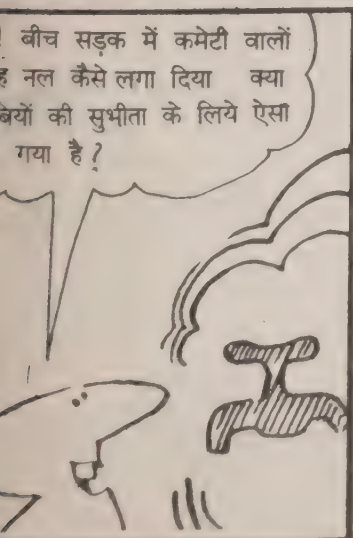 ! बीच सड़क में कमेटी वालों
ह नल कैसे लगा दिया क्या
बियों की सुभीता के लिये ऐसा
गया है ?